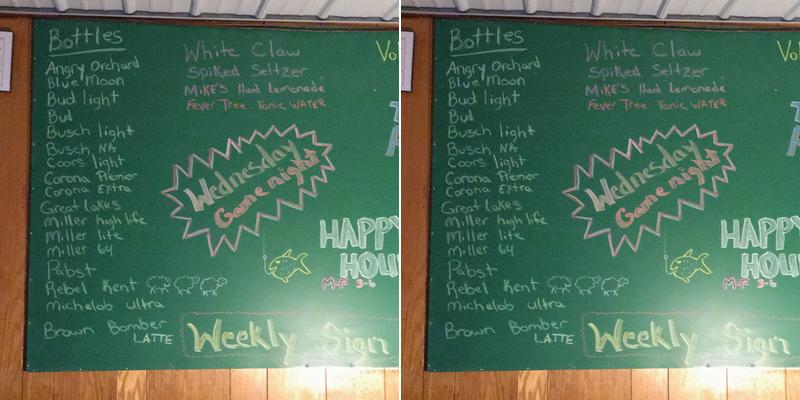 Bottles
Angry Orchard
Blue Moon
Bud light
Bud
Busch light
Busch NA
Coors light
Corona Premier
Corona Extra
Great Lakes
Miller high life
Miller lite
Miller 64
Pabst
Rebel Kent
Michelob ultra
Brown Bomber
LATTE
White Claw
Spiked Seltzer
MiKE'S Hard lemonade
Fever Tree Tonic WATER
Wednesday
Game night
HAPPY
HOU
M-F 3-6
Weekly Sign
Bottles
Angry Orchard
Blue Moon
Bud light
Bud
Busch light
Busch NA
Coors light
Corona Premier
Corona Extra
Great Lakes
Miller high life
Miller lite
Miller 64
Pabst
Rebel Kent
Michelob ultra
Brown Bomber
LATTE
White Claw
Spiked Seltzer
MiKE'S Hard lemonade
Fever Tree Tonic WATER
Wednesday
Game night
HAPPY
HOU
M-F 3-6
Weekly Sign